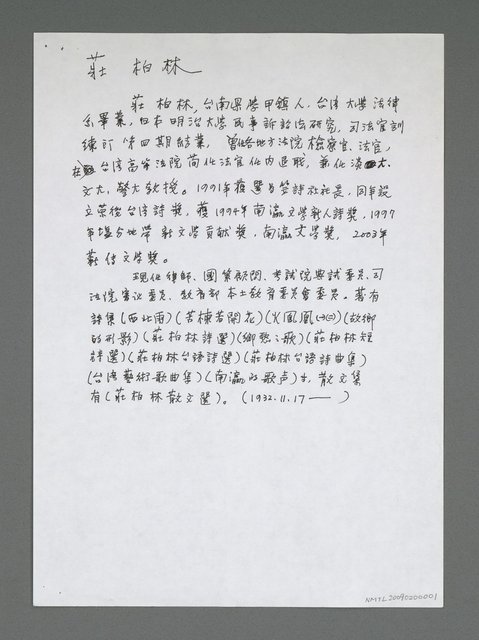 莊柏林
莊柏林,台南県學甲鎮人,台湾大學法律
系畢業,日本明治大學民事訴訟法研究,司法官訓
練所第四期結業,曾任各地方法院檢察官、法官,
在台湾高等法院簡化法官任內退職,兼任淡大、
文大、警大教授。1991年獲選笠詩社社長,同年設
立榮後台湾詩獎,獲1994年南瀛文學新人詩獎,1997
年塩分地帶新文學貢献獎,南瀛文學獎,2003年
薪传文學獎。
現任律師、國策顧問、考試院典試委員、司
法院審议委員、教育部本土教育委員會委員。著有
詩集(西北雨)(苦楝若開花)(火鳳凰)(故鄉
的形影)(莊柏林詩選)(鄉愁之歌)(莊柏林短
詩選)(莊柏林台语詩選)(莊柏林台语詩曲集)
(台湾藝術歌曲集)(南瀛的歌声)廿,散文集
有(莊柏林散文選)。(1932.11.17— )
NMTL20090200001